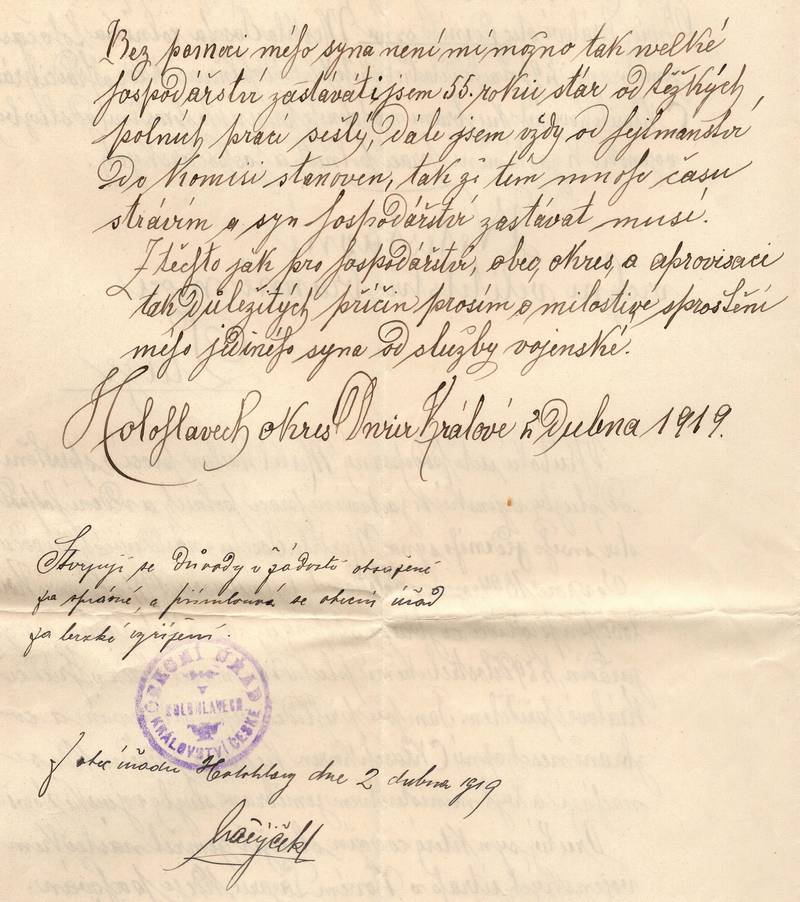 Bez pomoci mého syna není mi možno tak welké
hospodářství zastávati jsem 55. roků stár od těžkých
polních prací sešlý, dále jsem vždy od hejtmanství
do komisi stanoven, tak ži tém mnoho času
strávím a syn hospodářství zastávat musí.
Z těchto jak pro hospodářství, obec, okres, a aprovisaci
tak důležitých příčin prosím o milostivé sproštění
mého jediného syna od služby vojenské.
Holohlavech okres Dvůr Králové 2 dubna 1919.
Stvrzují se důvody v žádosti obsažené
za správné, a přimlouvá se obecní úřad
za brzké vyřízení.
OBECNÍ ÚŘAD
V
HOLOHLAVECH
KRÁLOVSTVÍ ČESKÉ
Z obec. úřadu Holohlavy dne 2 dubna 1919